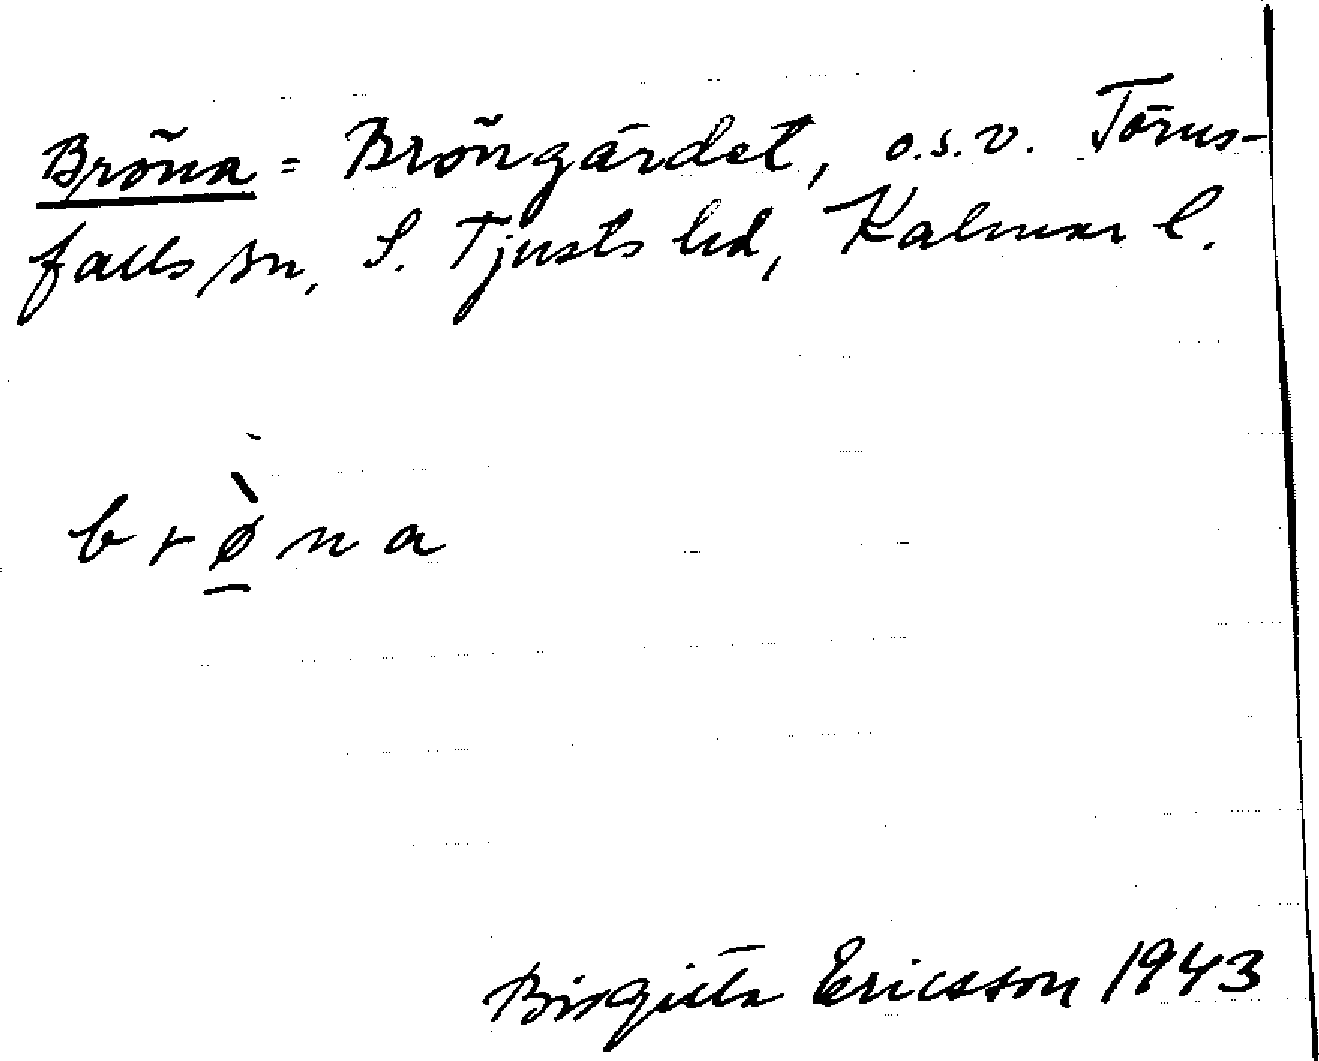 Bröna = Bröngärdet, o.s.v. Törns-
falls sn, S. Tjusts hd, Kalmar l.
br<u>ø̀</u>na
Birgitta Ericsson 1943